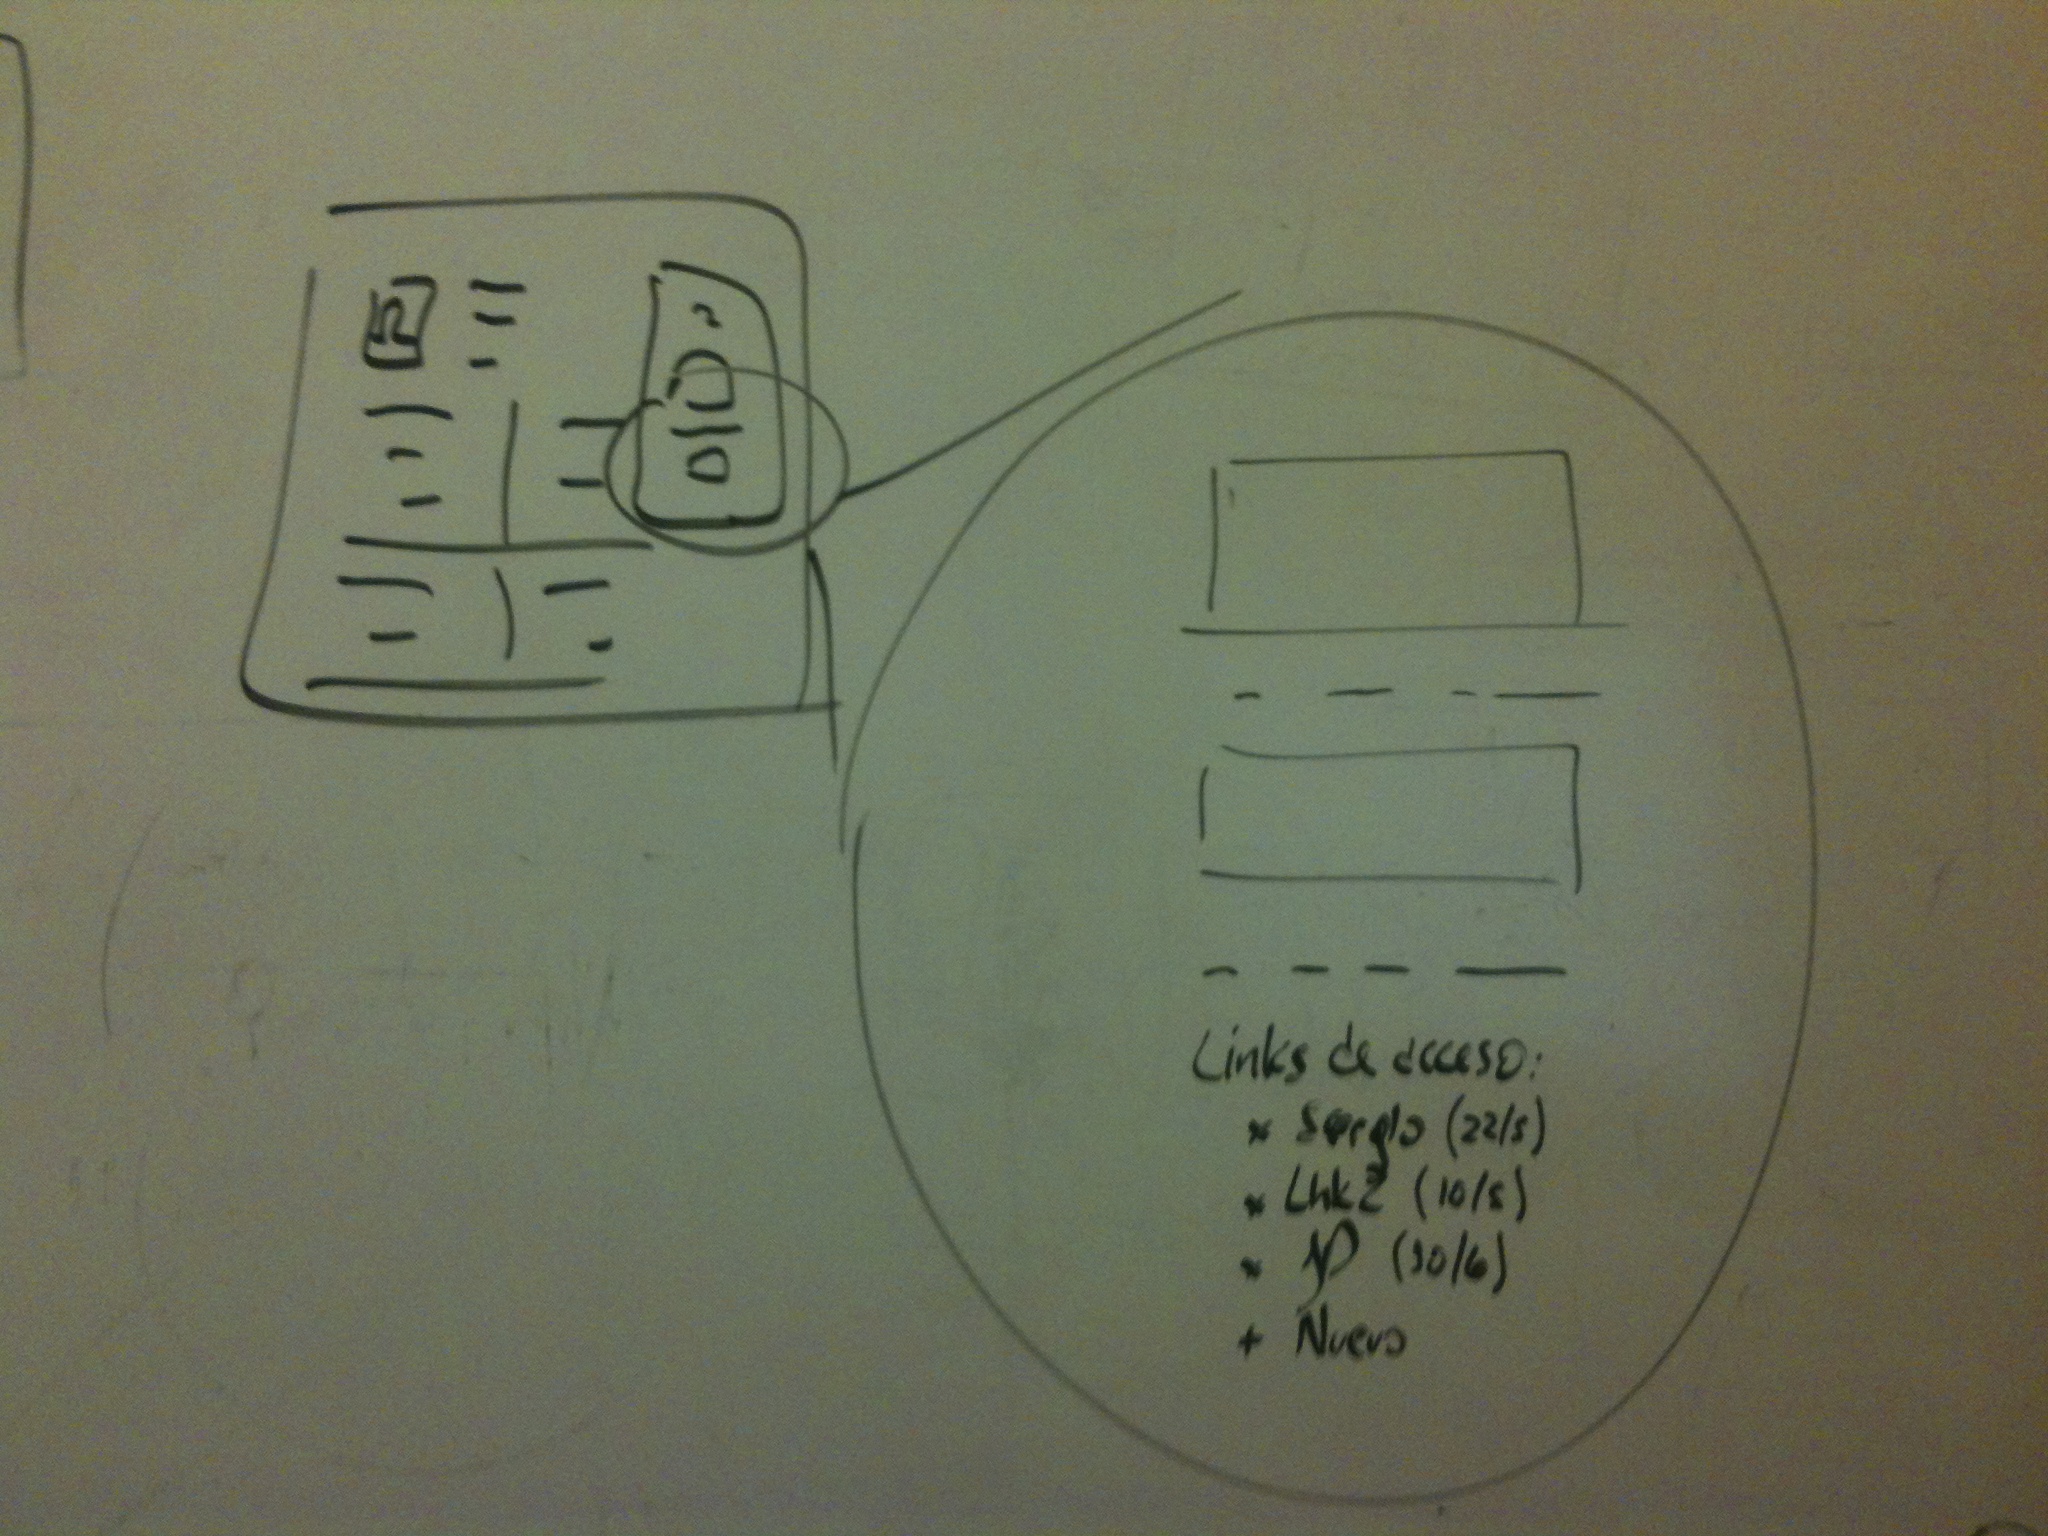 Links de acceso:
* Sergio (22/5)
* Link2 (10/5)
* (30/6)
+ Nuevo